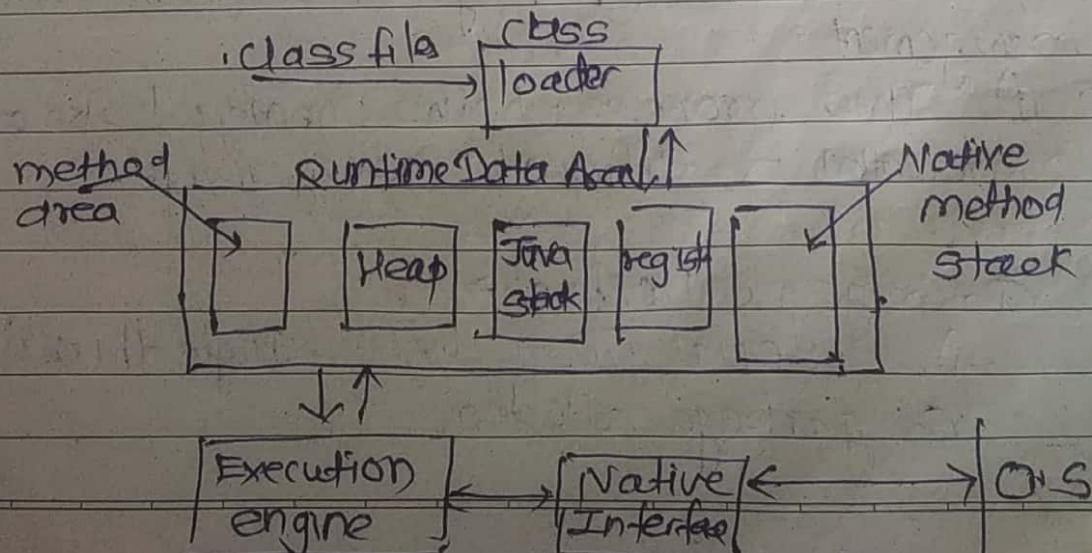 .class file
class
loader
method
area
Runtime Data Area
Native
method
stack
Heap
Java
stack
regist
Execution
engine
Native
Interface
O.S